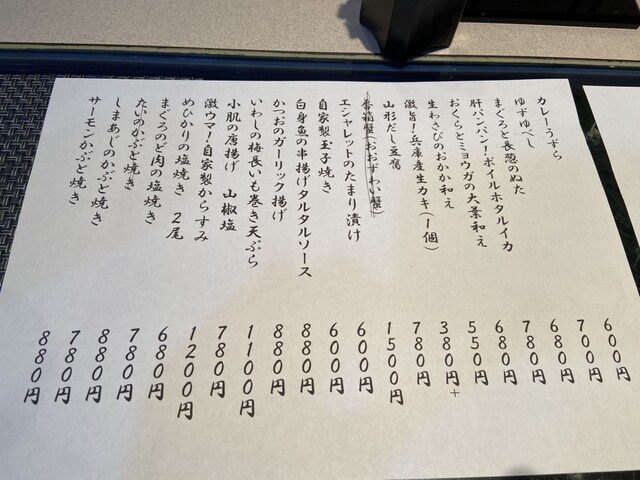 カレーうずら 600円
ゆずゆべし 700円
まぐろと長葱のぬた 680円
肝パンパン!ボイルホタルイカ 780円
おくらとミョウガの大葉和え 680円
生わさびのおかか和え 550円
激旨!兵庫産生カキ(1個) 380円+
山形だし豆腐 780円
香箱蟹(おおずわい蟹) 1500円
エシャレットのたまり漬け 600円
自家製玉子焼き 600円
白身魚の串揚げタルタルソース 880円
かつおのガーリック揚げ 880円
いわしの梅長いも巻き天ぷら 1100円
小肌の唐揚げ 山椒塩 780円
激ウマ!自家製からすみ 1200円
めひかりの塩焼き 2尾 680円
まぐろのど肉の塩焼き 780円
たいのかぶと焼き 880円
しまあじのかぶと焼き 780円
サーモンかぶと焼き 880円